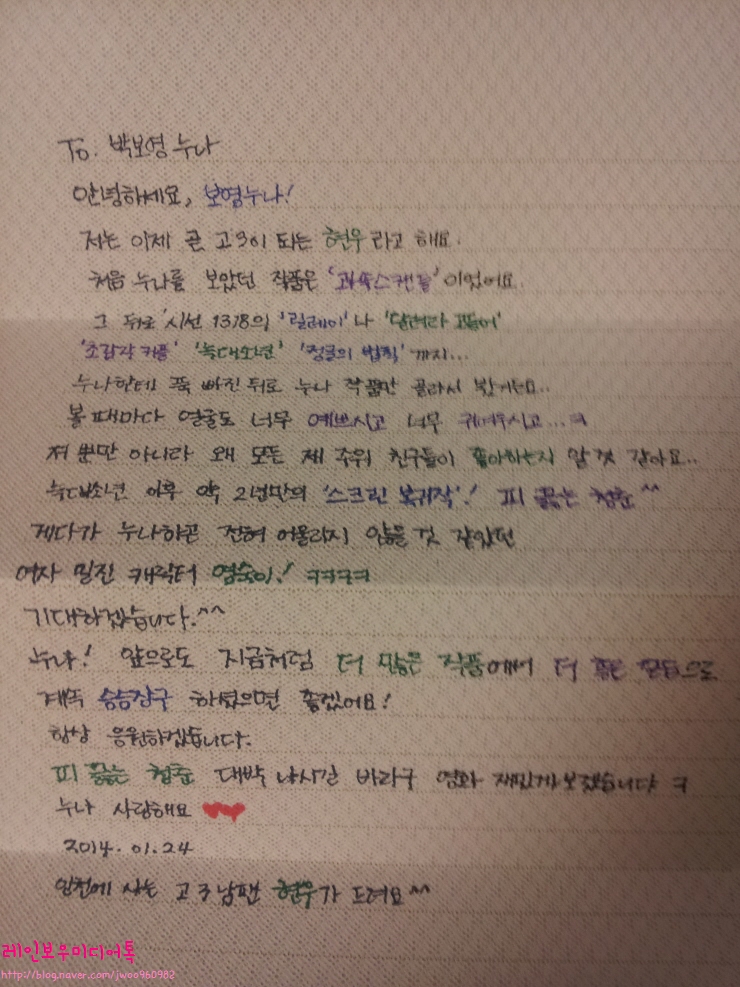 To. 박보영 누나
안녕하세요, 보영누나!
저는 이제 곧 고3이 되는 현우라고 해요.
처음 누나를 보았던 작품은 '과속스캔들'이었어요.
그 뒤로 '시선 1318의 '릴레이'나 '달려라 꼴찌'
'초감각 커플' '늑대소년' '정글의 법칙' 까지...
누나한테 푹 빠진 뒤로 누나 작품만 골라서 봤거든요..
볼 때마다 얼굴도 너무 예쁘시고 너무 귀여우시고...ㅋ
저 뿐만 아니라 왜 모든 제 주위 친구들이 좋아하는지 알 것 같아요..
늑대소년 이후 약 2년만의 '스크린 복귀작'! 피 끓는 청춘^^
게다가 누나하곤 전혀 어울리지 않을 것 같았던
여자 일진 캐릭터 영숙이! ㅋㅋㅋㅋ
기대하겠습니다.^^
누나! 앞으로도 지금처럼 더 많은 작품에서 더 좋은 모습으로
계속 승승장구 하셨으면 좋겠어요!
항상 응원하겠습니다.
피 끓는 청춘 대박 나시길 바라구 영화 재밌게 보겠습니다 ㅋ
누나 사랑해요
2014. 01. 24
인천에 사는 고3 남팬 현우가 드려요^^
레인보우미디어톡
http://blog.naver.com/jwoo960982